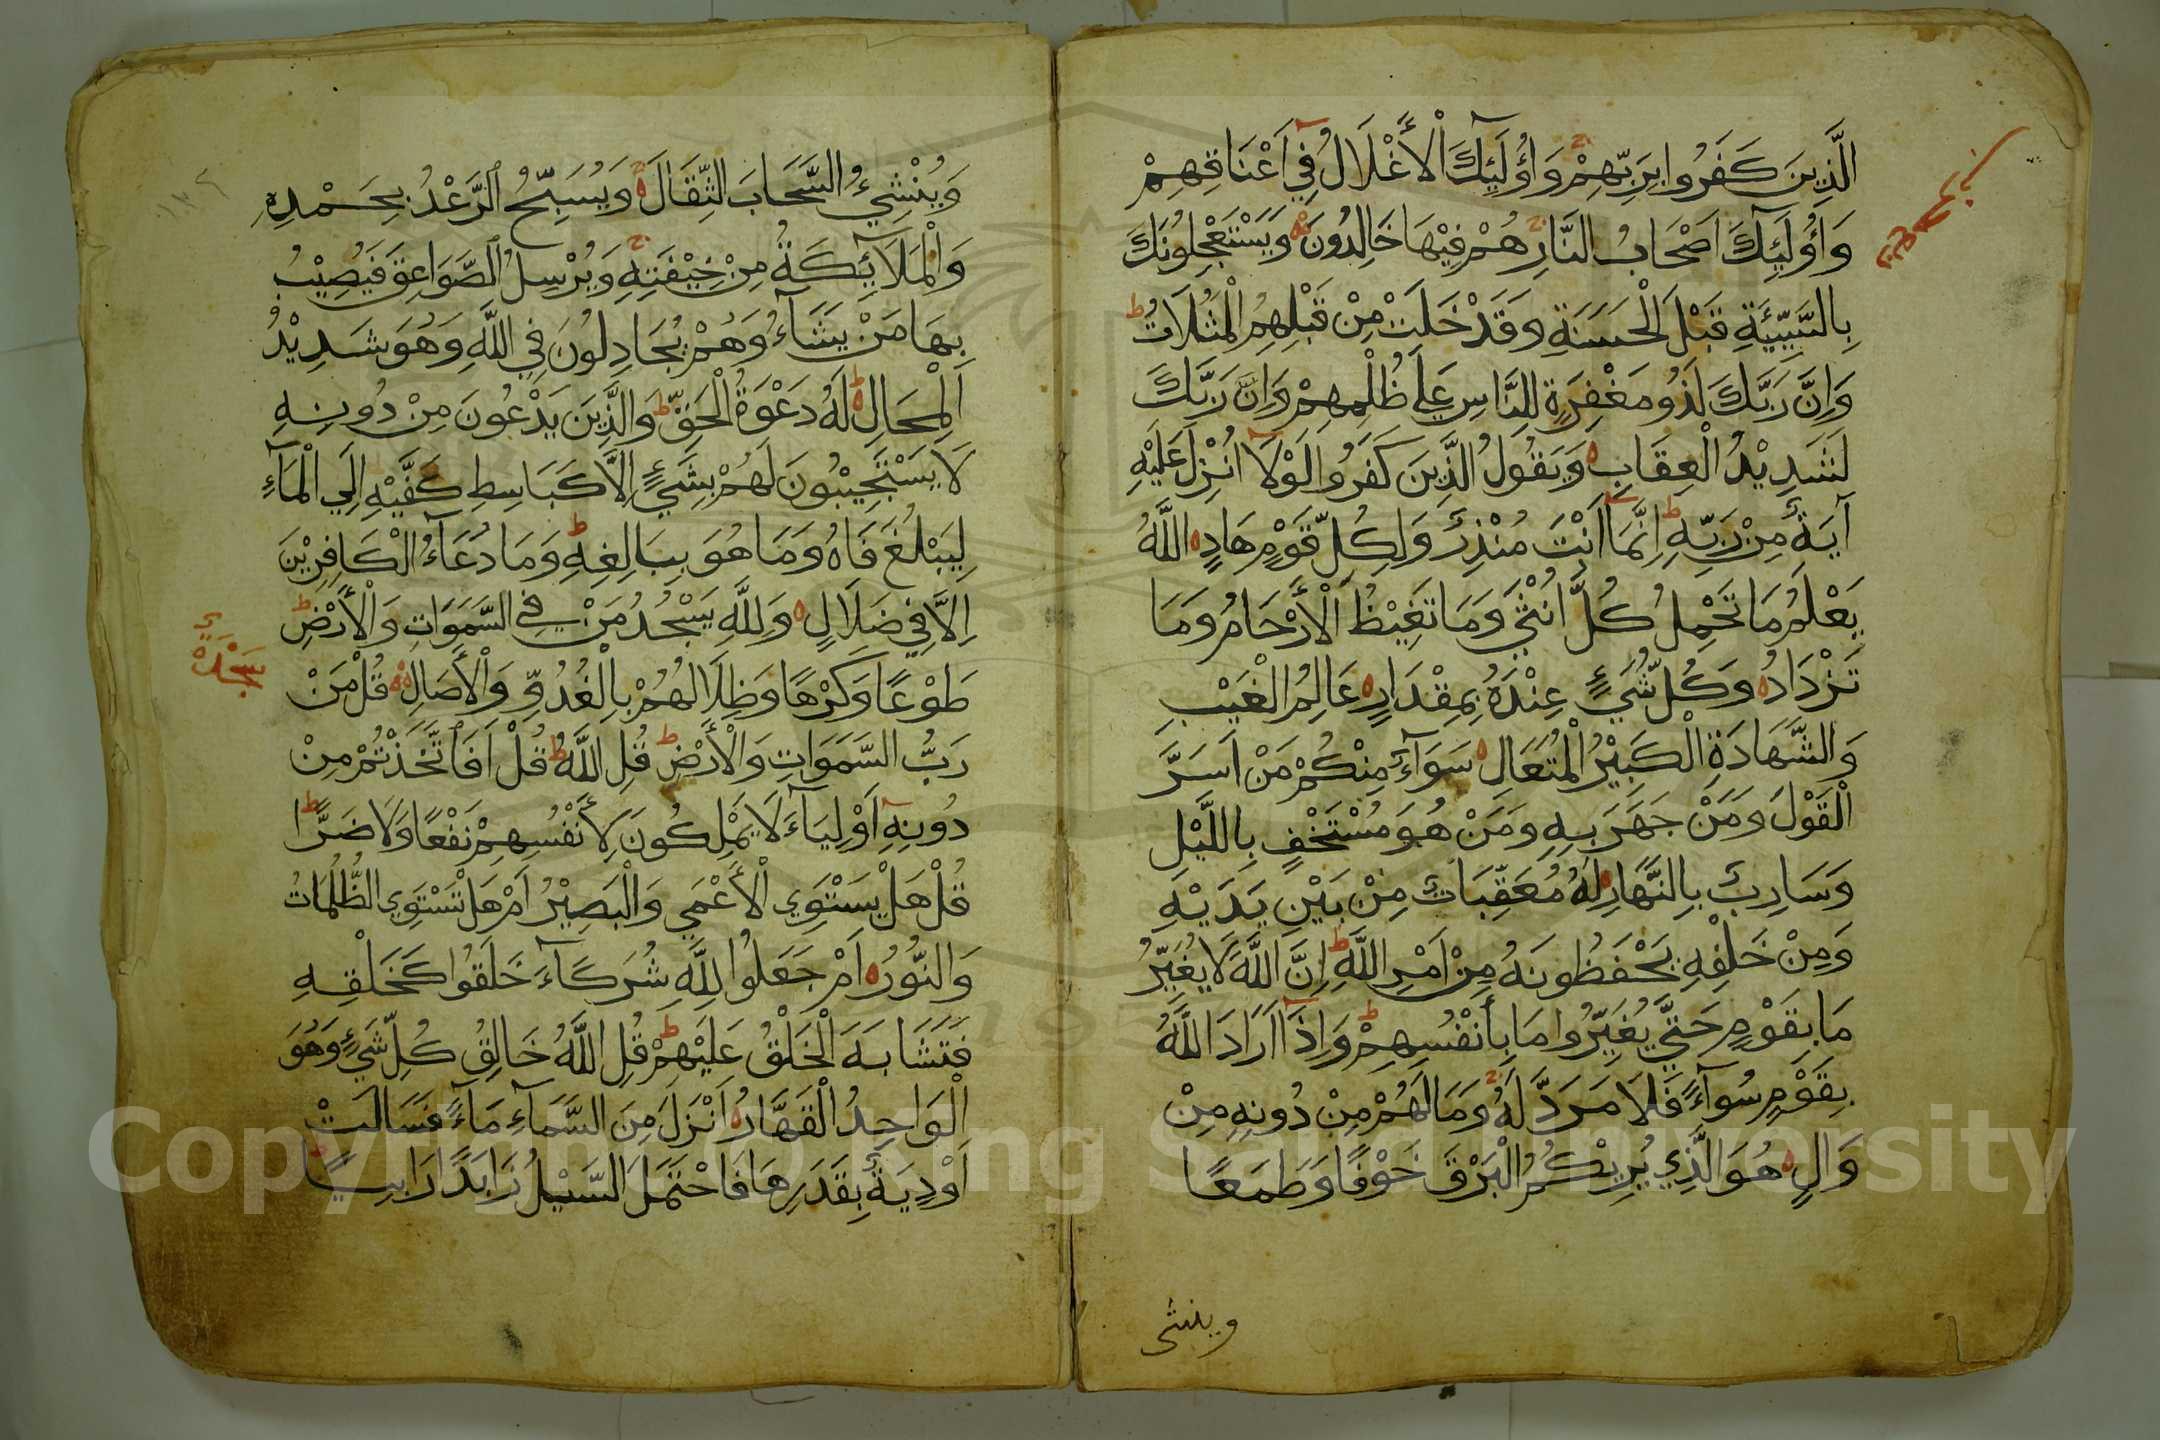 الَّذِينَ كَفَرُوا بِرَبِّهِمْ وَأُولَٰٓئِكَ الْأَغْلَالُ فِي أَعْنَاقِهِمْ
وَأُولَٰٓئِكَ أَصْحَابُ النَّارِ هُمْ فِيْهَا خَالِدُونَ وَيَسْتَعْجِلُونَكَ
بِالسَّيِّئَةِ قَبْلَ الْحَسَنَةِ وَقَدْ خَلَتْ مِنْ قَبْلِهِمُ الْمَثُلَاتُ ط
وَاِنَّ رَبَّكَ لَذُو مَغْفِرَةٍ لِلنَّاسِ عَلَى ظُلْمِهِمْ وَاِنَّ رَبَّكَ
لَشَدِيْدُ الْعِقَابِ وَيَقُولُ الَّذِينَ كَفَرُوا لَوْلَا اُنْزِلَ عَلَيْهِ
آيَةٌ مِنْ رَبِّهِ ط اِنَّمَا اَنْتَ مُنْذِرٌ وَلِكُلِّ قَوْمٍ هَادٍ اللَّهُ
يَعْلَمُ مَا تَحْمِلُ كُلُّ اُنْثَى وَمَا تَغِيْظُ الْأَرْحَامُ وَمَا
تَزْدَادُ وَكُلُّ شَيْءٍ عِنْدَهُ بِمِقْدَارٍ عَالِمُ الْغَيْبِ
وَالشَّهَادَةِ الْكَبِيْرُ الْمُتَعَالِ سَوَآءٌ مِنْكُمْ مَنْ اَسَرَّ
الْقَوْلَ وَمَنْ جَهَرَ بِهِ وَمَنْ هُوَ مُسْتَخْفٍ بِاللَّيْلِ
وَسَارِبٌ بِالنَّهَارِ لَهُ مُعَقِّبَاتٌ مِنْ بَيْنِ يَدَيْهِ
وَمِنْ خَلْفِهِ يَحْفَظُونَهُ مِنْ اَمْرِ اللَّهِ ط اِنَّ اللَّهَ لَا يُغَيِّرُ
مَا بِقَوْمٍ حَتَّى يُغَيِّرُوا مَا بِأَنْفُسِهِمْ ط وَاِذَا اَرَادَ اللَّهُ
بِقَوْمٍ سُوآءً فَلَا مَرَدَّ لَهُ وَمَا لَهُمْ مِنْ دُونِهِ مِنْ
وَالٍ هُوَ الَّذِي يُرِيْكُمُ الْبَرْقَ خَوْفًا وَطَمَعًا
وينشي
وَيُنْشِيءُ السَّحَابَ الثِّقَالَ وَيُسَبِّحُ الرَّعْدُ بِحَمْدِهِ
وَالْمَلَآئِكَةُ مِنْ خِيْفَتِهِ وَيُرْسِلُ الصَّوَاعِقَ فَيُصِيْبُ
بِهَا مَنْ يَشَآءُ وَهُمْ يُجَادِلُونَ فِي اللَّهِ وَهُوَ شَدِيْدُ
الْمِحَالِ لَهُ دَعْوَةُ الْحَقِّ ط وَالَّذِينَ يَدْعُونَ مِنْ دُونِهِ
لَا يَسْتَجِيْبُونَ لَهُمْ بِشَيْءٍ اِلَّا كَبَاسِطِ كَفَّيْهِ اِلَي الْمَآءِ
لِيَبْلُغَ فَاهُ وَمَا هُوَ بِبَالِغِهِ ط وَمَا دُعَآءُ الْكَافِرِيْنَ
اِلَّا فِي ضَلَالٍ وَلِلَّهِ يَسْجُدُ مَنْ فِي السَّمَوَاتِ وَالْأَرْضِ ط
سَجْدَة
طَوْعًا وَكَرْهًا وَظِلَالُهُمْ بِالْغُدُوِّ وَالْأَصَالِ قُلْ مَنْ
رَبُّ السَّمَوَاتِ وَالْأَرْضِ ط قُلِ اللَّهُ ط قُلْ اَفَاتَّخَذْتُمْ مِنْ
دُونِهِ اَوْلِيَآءَ لَا يَمْلِكُونَ لِأَنْفُسِهِمْ نَفْعًا وَلَا ضَرًّا ط
قُلْ هَلْ يَسْتَوِي الْأَعْمَي وَالْبَصِيْرُ اَمْ هَلْ تَسْتَوِي الظُّلُمَاتُ
وَالنُّوْرُ اَمْ جَعَلُوا لِلَّهِ شُرَكَآءَ خَلَقُوا كَخَلْقِهِ
فَتَشَابَهَ الْخَلْقُ عَلَيْهِمْ ط قُلِ اللَّهُ خَالِقُ كُلِّ شَيْءٍ وَهُوَ
الْوَاحِدُ الْقَهَّارُ اَنْزَلَ مِنَ السَّمَآءِ مَآءً فَسَالَتْ
اَوْدِيَةٌ بِقَدَرِهَا فَاحْتَمَلَ السَّيْلُ زَبَدًا رَابِيًا
Copyright © King Saud University